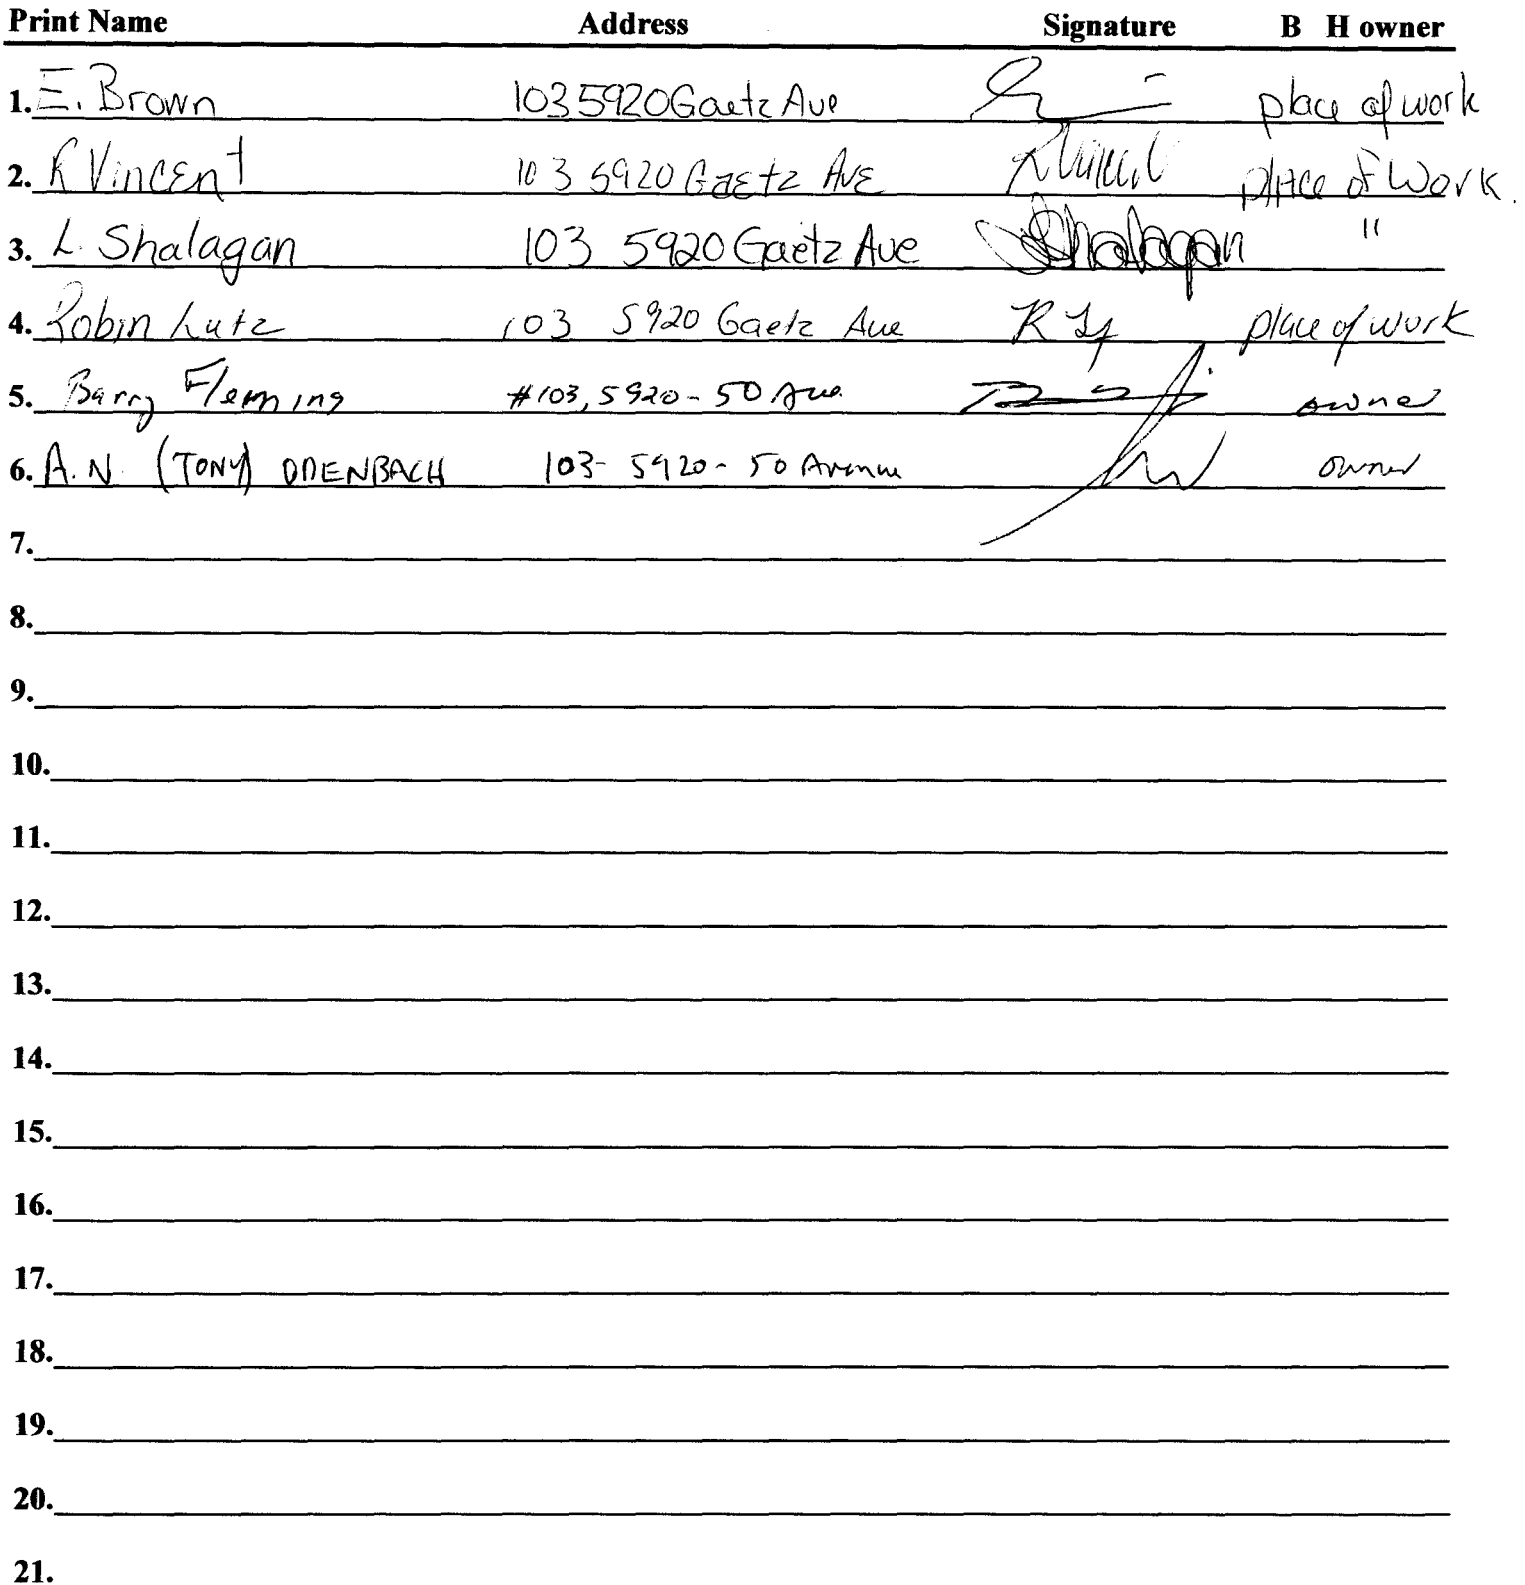 Print Name Address Signature B H owner
1. E. Brown 103 5920 Gaetz Ave place of work
2. K Vincent 103 5920 Gaetz Ave place of Work.
3. L. Shalagan 103 5920 Gaetz Ave Shalagan "
4. Robin Lutz 103 5920 Gaetz Ave place of work
5. Barry Fleming #103, 5920 - 50 Ave. owner
6. A.N. (TONY) ODENBACH 103 - 5920 - 50 Avenue owner
7.
8.
9.
10.
11.
12.
13.
14.
15.
16.
17.
18.
19.
20.
21.